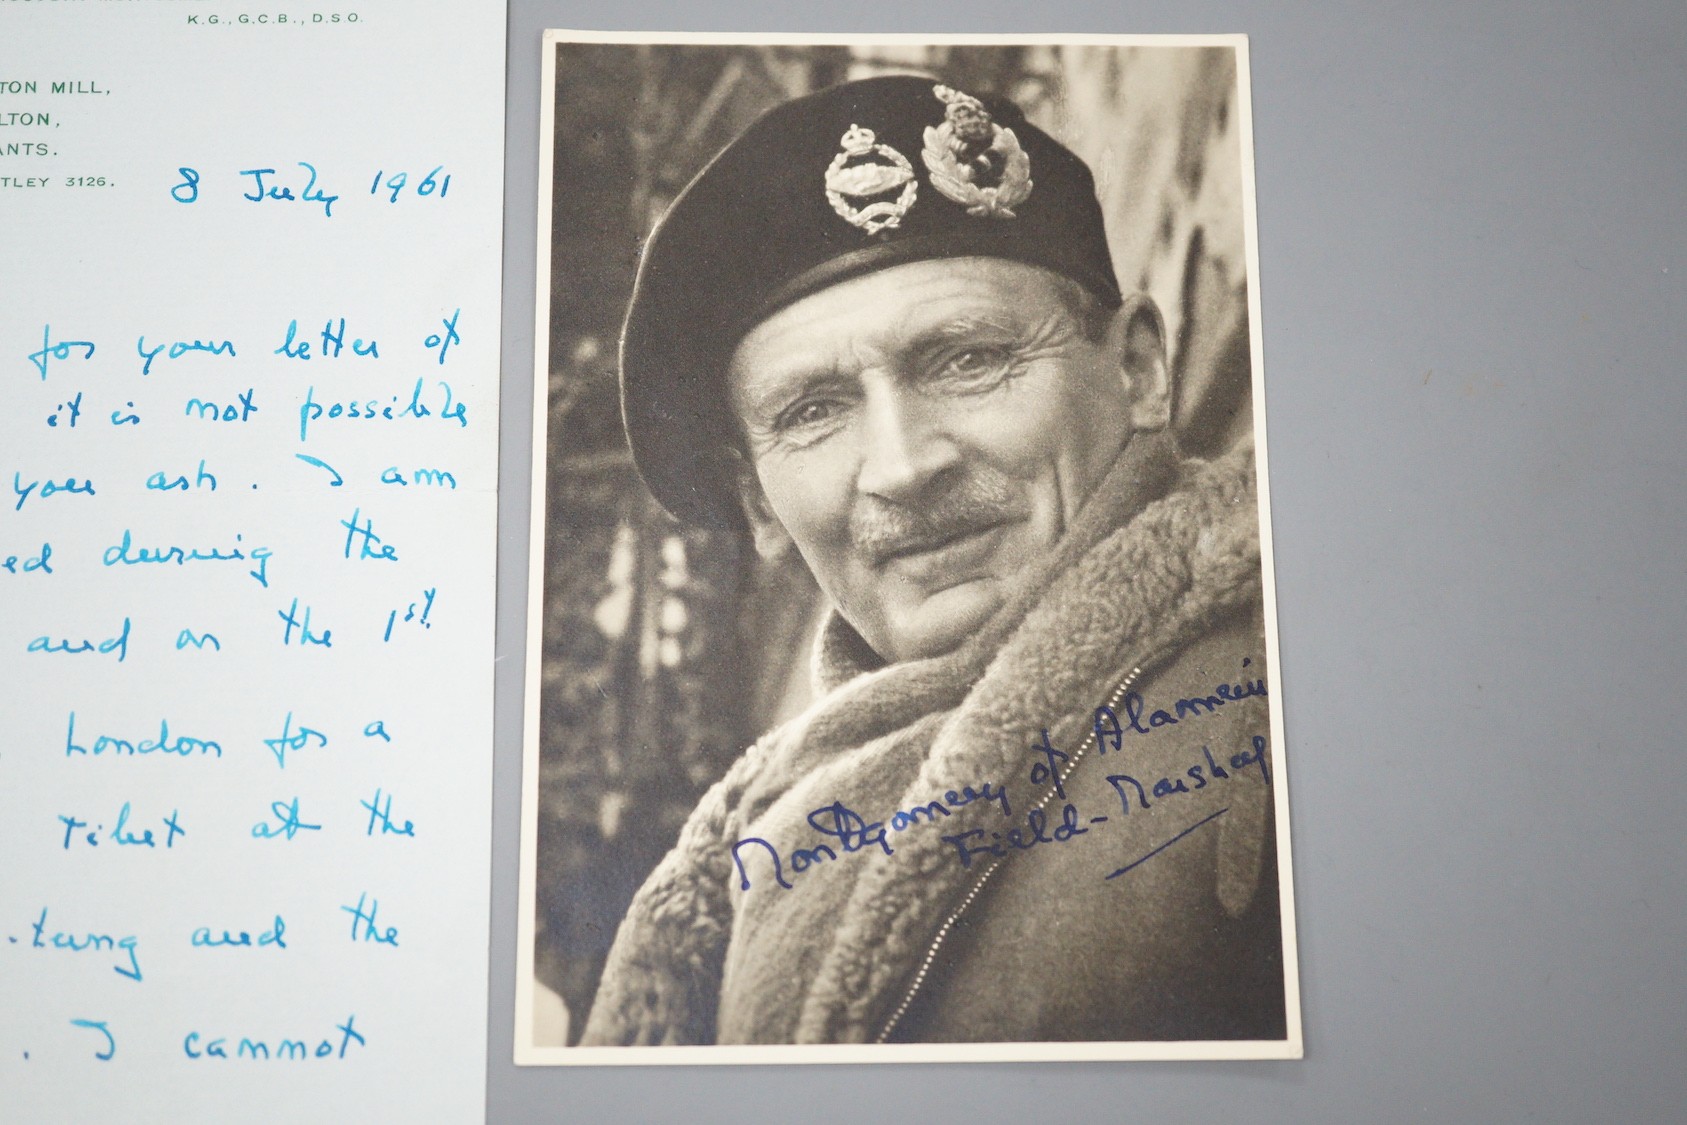 K.G., G.C.B., D.S.O.
TON MILL,
LTON,
ANTS.
TLEY 3126.
8 July 1961
for your letter of
it is not possible
you ask. I am
ed during the
and on the 1st
London for a
Tibet at the
tung and the
. I cannot
Montgomery of Alamein
Field-Marshal